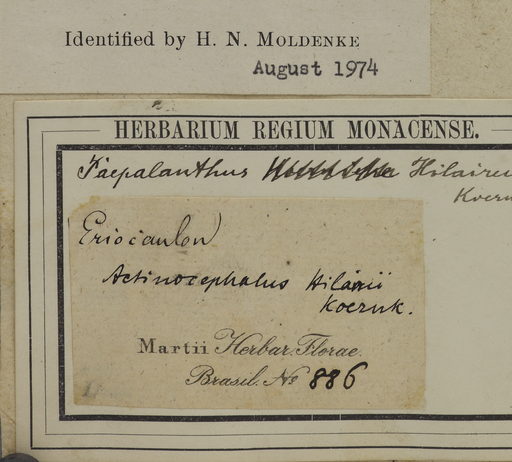 Identified by H. N. MOLDENKE
August 1974
HERBARIUM REGIUM MONACENSE.
Paepalanthus Hilairei
Koern
Eriocaulon
Actinocephalus Hilarii
Koernk.
Martii Herbar. Florae
Brasil. No 886